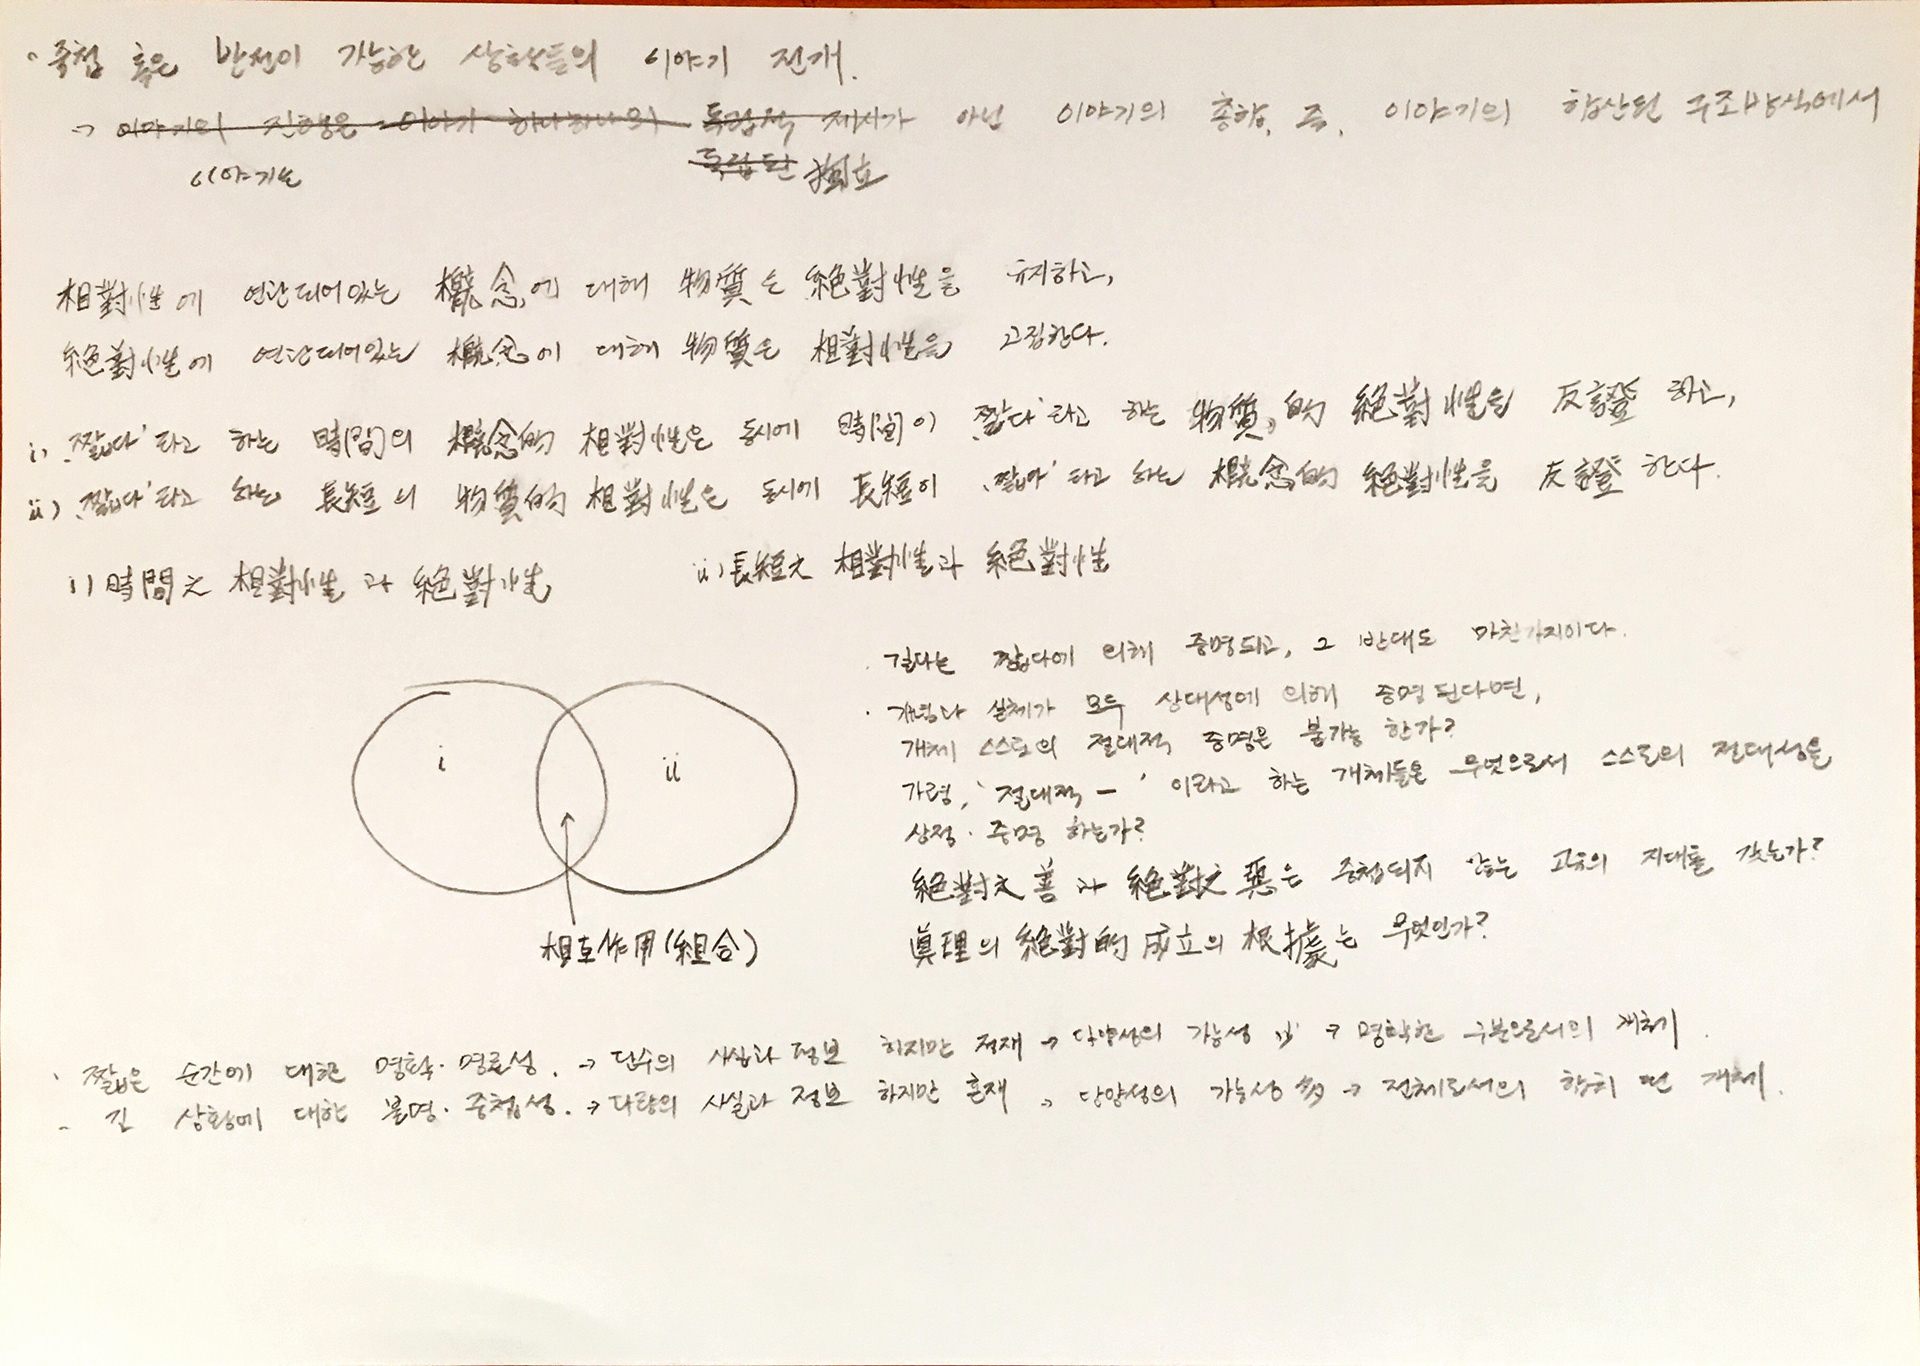 · 중첩 혹은 반전이 가능한 상황들의 이야기 전개.
→ 이야기의 진행은 이야기 하나하나의 독립적 제시가 아닌 이야기의 총합, 즉, 이야기의 합산된 구조방식에서
이야기는 독립된 獨立
相對性에 연관되어있는 概念에 대해 物質은 絕對性을 유지하고,
絕對性에 연관되어있는 概念에 대해 物質은 相對性을 고집한다.
i) '짧다'라고 하는 時間의 概念的 相對性은 동시에 時間이 '짧다'라고 하는 物質的 絕對性을 反證하고,
ii) '짧다'라고 하는 長短의 物質的 相對性은 동시에 長短이 '짧다'라고 하는 概念的 絕對性을 反證한다.
i) 時間之 相對性과 絕對性
ii) 長短之 相對性과 絕對性
· 길다는 짧다에 의해 증명되고, 그 반대도 마찬가지이다.
· 개념과 실체가 모두 상대성에 의해 증명된다면,
개체 스스로의 절대적 증명은 불가능 한가?
가령, '절대적 ー' 이라고 하는 개체들은 무엇으로서 스스로의 절대성을
상정·증명 하는가?
絕對之善과 絕對之惡은 중첩되지 않는 고유의 지대를 갖는가?
眞理의 絕對的 成立의 根據는 무엇인가?
i
ii
相互作用(組合)
· 짧은 순간에 대한 명확·명료성. → 단수의 사실과 정보 하지만 적재 → 다양성의 가능성 少 → 명확한 구분으로서의 개체.
· 긴 상황에 대한 불명·중첩성. → 다량의 사실과 정보 하지만 혼재 → 다양성의 가능성 多 → 전체로서의 합치 된 개체.